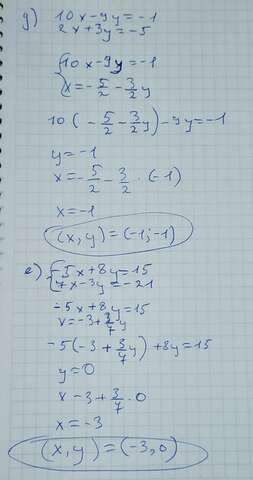 g) 10x-9y=-1
2x+3y=-5
{10x-9y=-1
{x=-5/2-3/2y
10(-5/2-3/2y)-9y=-1
y=-1
x=-5/2-3/2·(-1)
x=-1
(x,y)=(-1;-1)
e) {-5x+8y=15
{7x-3y=-21
-5x+8y=15
x=-3+3/7y
-5(-3+3/7y)+8y=15
y=0
x-3+3/7·0
x=-3
(x,y)=(-3,0)